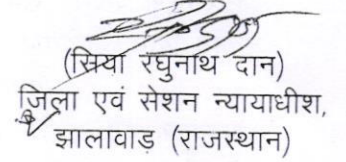 (सिया रघुनाथ दान)
जिला एवं सेशन न्यायाधीश,
झालावाड़ (राजस्थान)